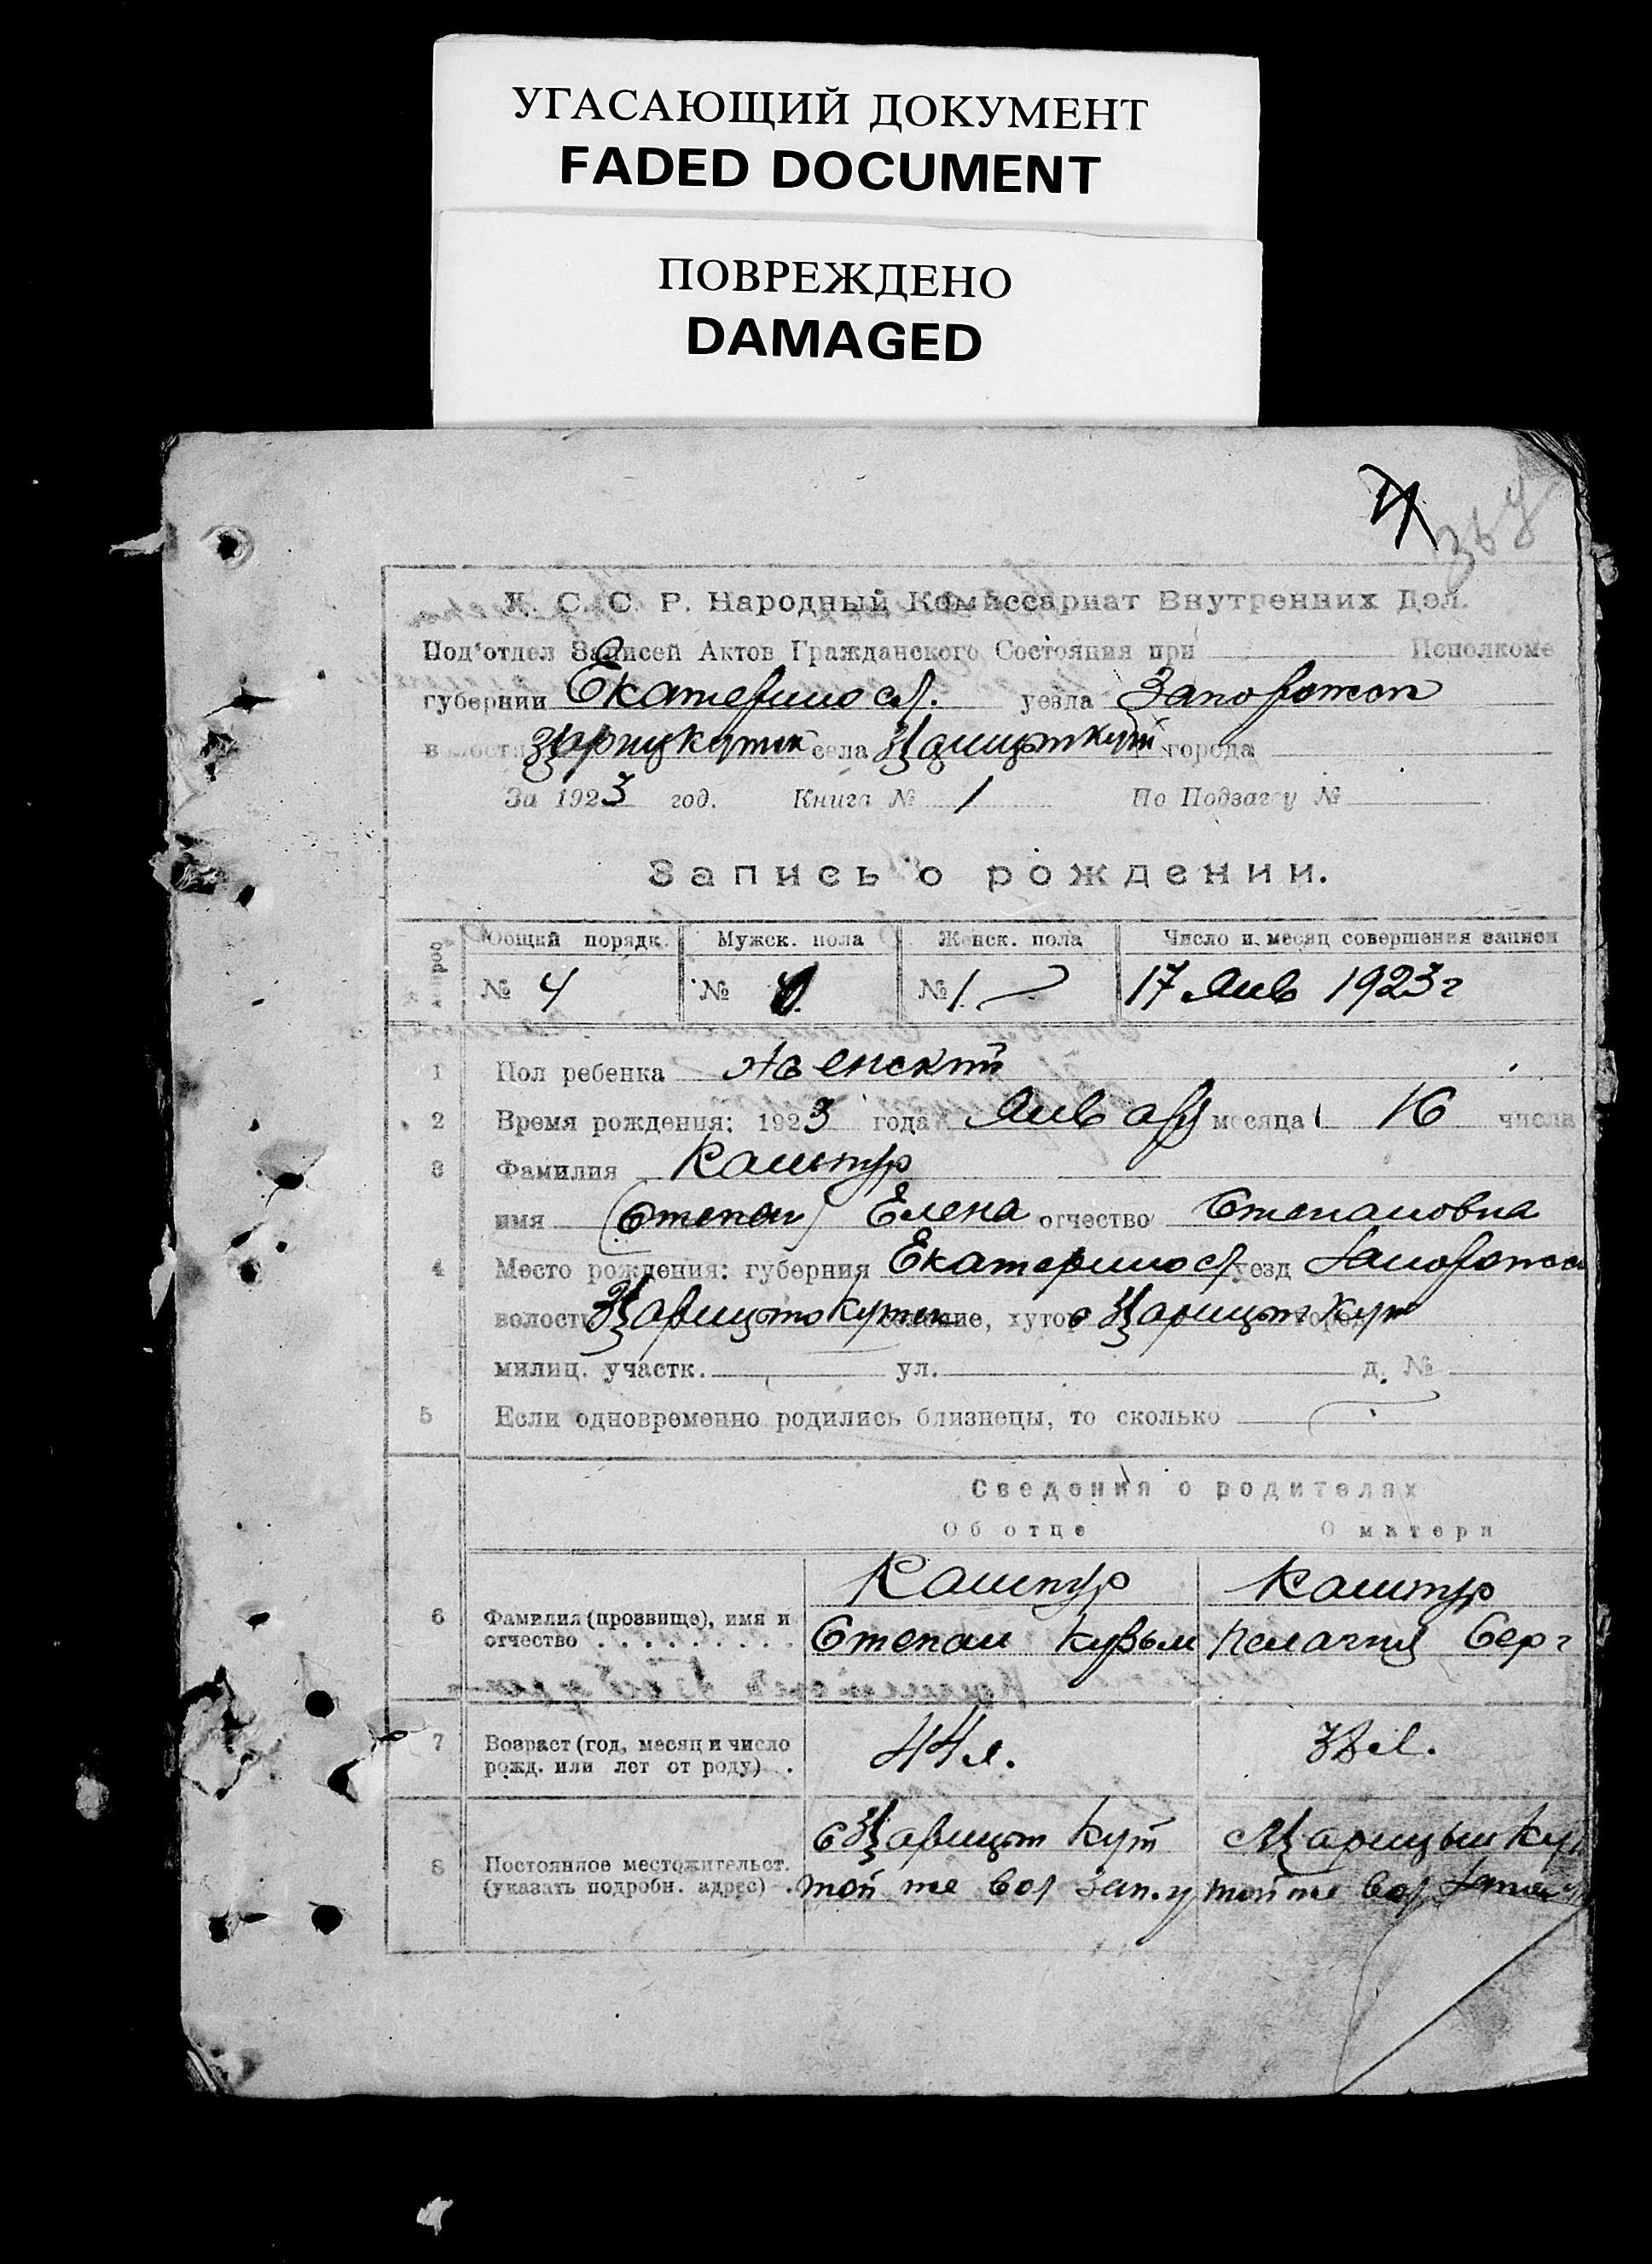 УГАСАЮЩИЙ ДОКУМЕНТ
FADED DOCUMENT
ПОВРЕЖДЕНО
DAMAGED
С. С. Р. Народный Комиссариат Внутренних Дел.
Под'отдел Записей Актов Гражданского Состояния при Исполкоме
губернии Екатериносл. уезда Запорожск
села города
За 1923 год. Книга № 1 По Подзагсу №
Запись о рождении.
Общий порядк. Мужск. пола Женск. пола Число и месяц совершения записи
№ 4 № № 1. 17 Янв 1923 г
1 Пол ребенка женский
2 Время рождения: 1923 года Января месяца 16 числа
3 Фамилия Каштур
имя (Степан) Елена отчество Степановна
4 Место рождения: губерния Екатериносл уезд Запорожск
волость Царицынокутск с Царицын Кут
милиц. участк. ул. д. №
5 Если одновременно родились близнецы, то сколько
Сведения о родителях
Об отце О матери
Каштур Каштур
6 Фамилия (прозвище), имя и Степан Кузьм Пелагия Серг
отчество
7 Возраст (год, месяц и число 44 л.
рожд. или лет от роду)
с Царицын Кут с Царицын Кут
8 Постоянное местожительст.
(указать подробн. адрес) той же вол Зап. у той же вол